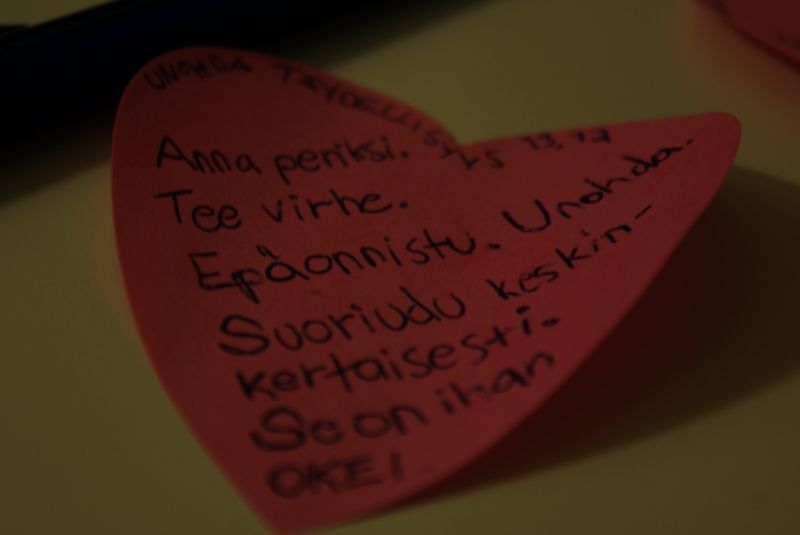 UNOHDA TÄYDELLISYYS
Anna periksi.
Tee virhe.
Epäonnistu. Unohda.
Suoriudu keskin-
kertaisesti.
Se on ihan
OKEI.